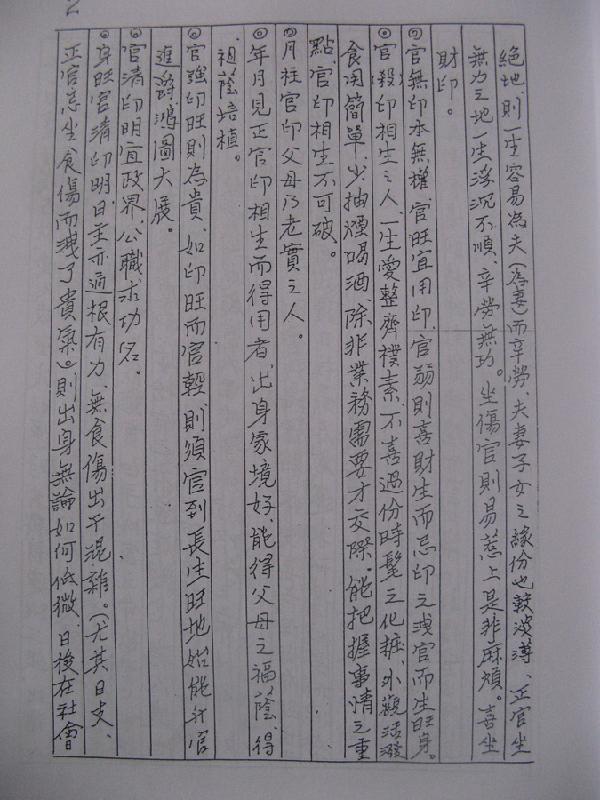 2
絕地,則一生容易為夫(為妻)而辛勞、夫妻子女之緣份也較波薄、正官坐
無力之地一生浮沉不順、辛勞無功。坐傷官則易惹上是非麻煩。喜坐
財印。
◎官無印本無權,官旺宜用印,官弱則喜財生而忌印之洩官而生旺身。
◎官殺印相生之人,一生愛整齊樸素,不喜過份時髦之化粧,外觀活潑
食用簡單,少抽煙喝酒,除非業務需要才交際。能把握事情之重
點,官印相生不可破。
◎月柱官印父母乃老實之人。
◎年月見正官印相生而得用者,出身家境好,能得父母之福蔭,得
祖蔭培植。
◎官強印旺則為貴,如印旺而官輕,則須官到長生旺地始能升官
進爵鴻圖大展。
◎官清印明宜政界、公職求功名.
◎身旺官清印明,日主亦通根有力,無食傷出干混雜。(尤其日支、
正官忌坐食傷而洩了貴氣。)則出身無論如何低微,日後在社會